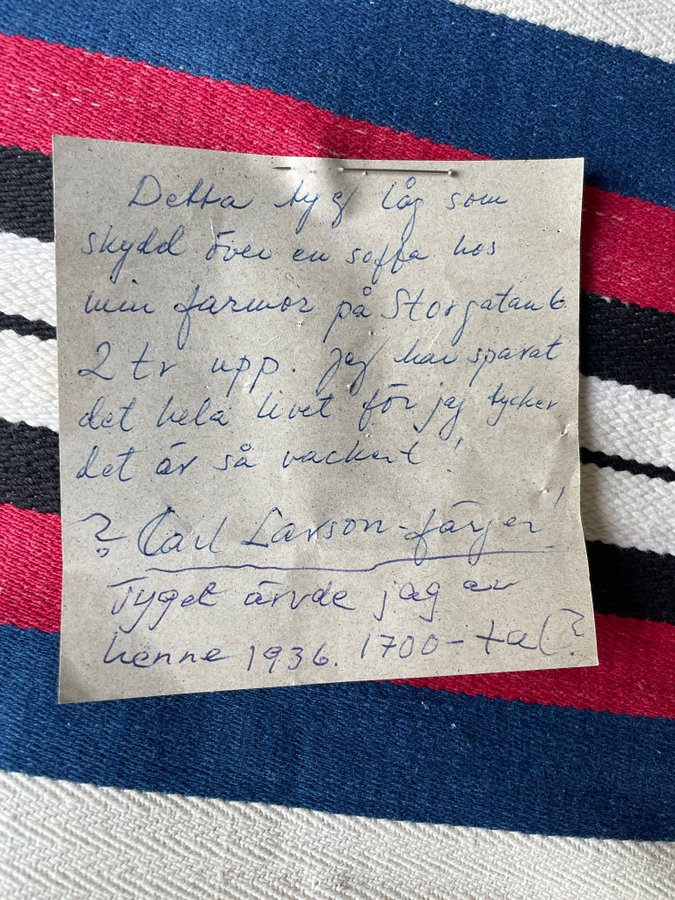 Detta tyg låg som
skydd över en soffa hos
min farmor på Storgatan 6
2 tr upp. Jag har sparat
det hela livet för jag tycker
det är så vackert!
? Carl Larson-färger!
Tyget ärvde jag av
henne 1936. 1700-tal?